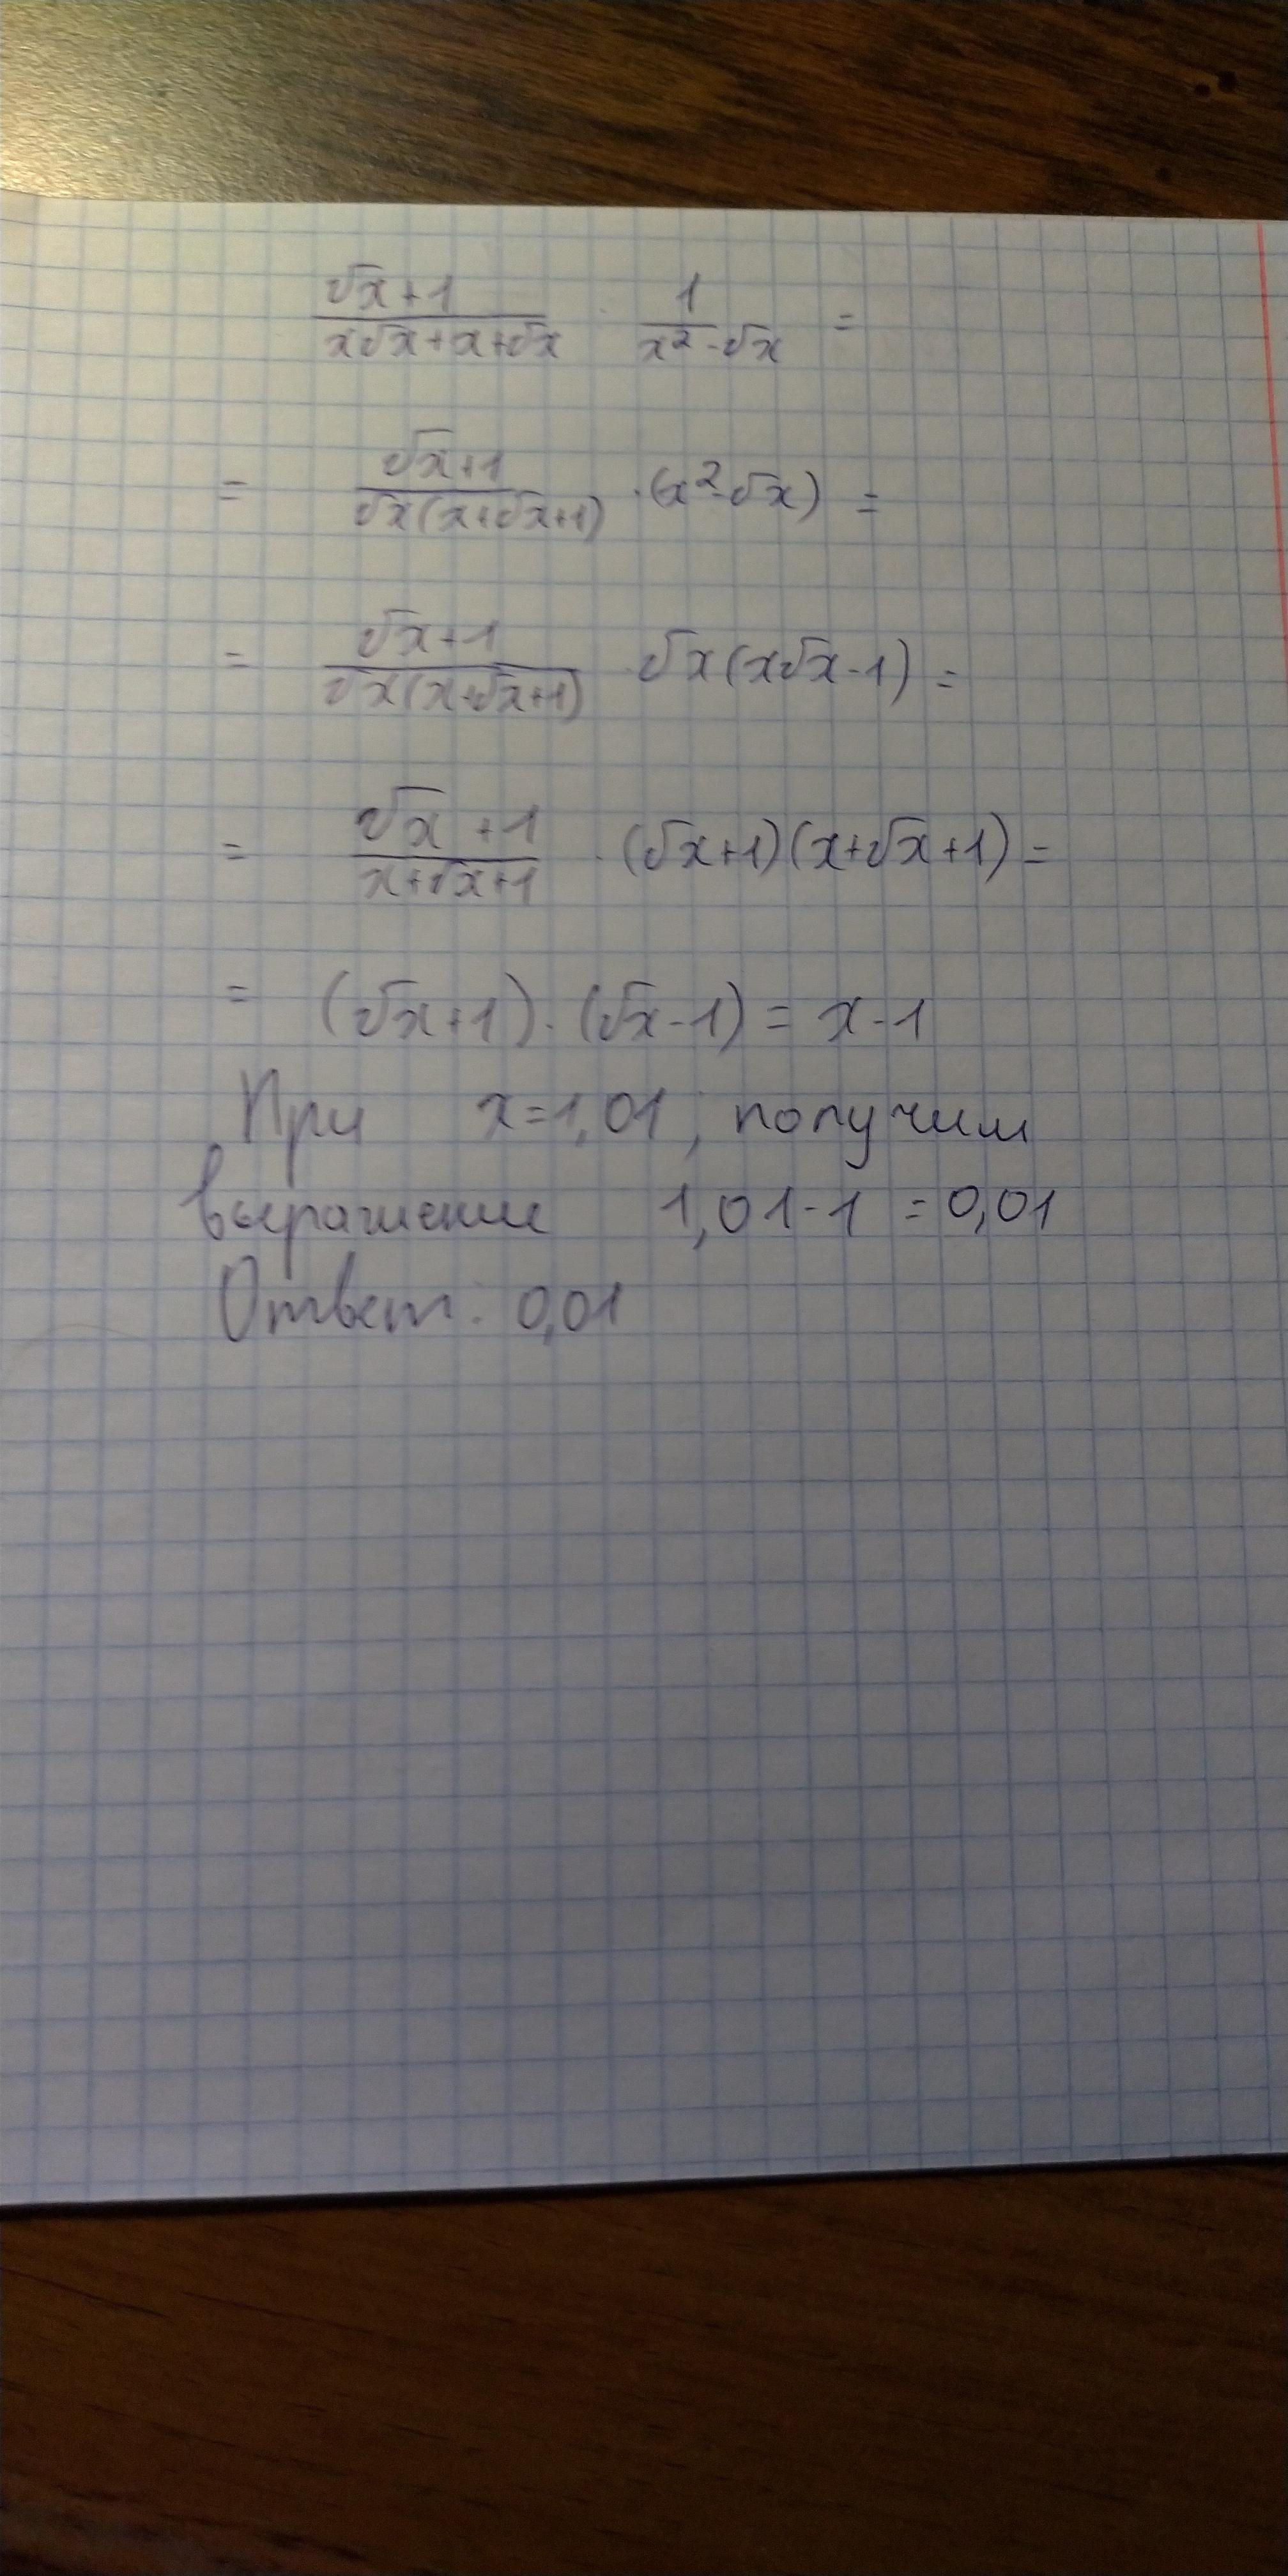 (√x+1)/(x√x+x+√x) · 1/(x²-√x) =
= (√x+1)/(√x(x+√x+1)) · (x²-√x) =
= (√x+1)/(√x(x+√x+1)) · √x(x√x-1) =
= (√x+1)/(x+√x+1) · (√x+1)(x+√x+1) =
= (√x+1) · (√x-1) = x-1
При x=1,01, получим
выражение 1,01-1 = 0,01
Ответ: 0,01